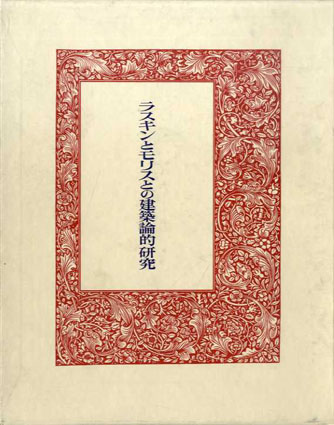 ラスキンとモリスとの建築論的研究